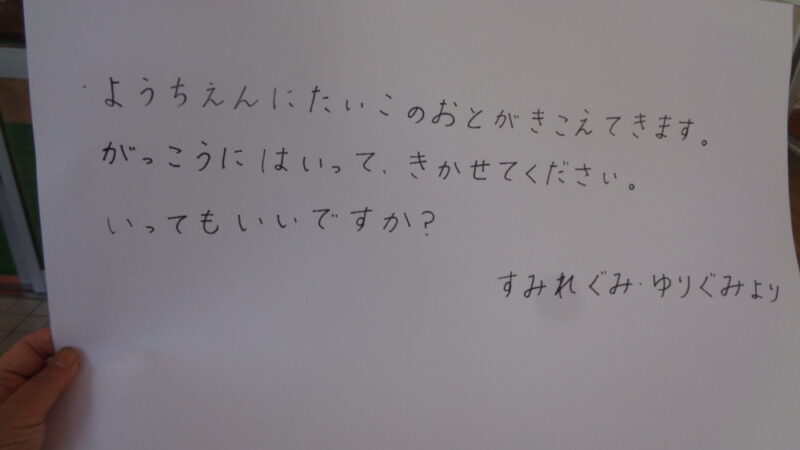 ようちえんにたいこのおとがきこえてきます。
がっこうにはいって、きかせてください。
いってもいいですか?
すみれぐみ・ゆりぐみより